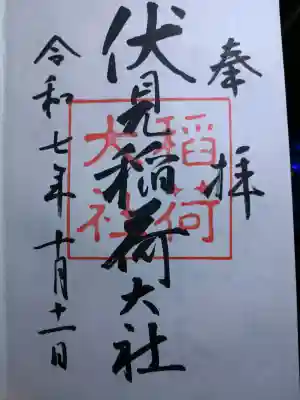 奉拝
伏見稲荷大社
稲荷大社
令和七年十月十一日